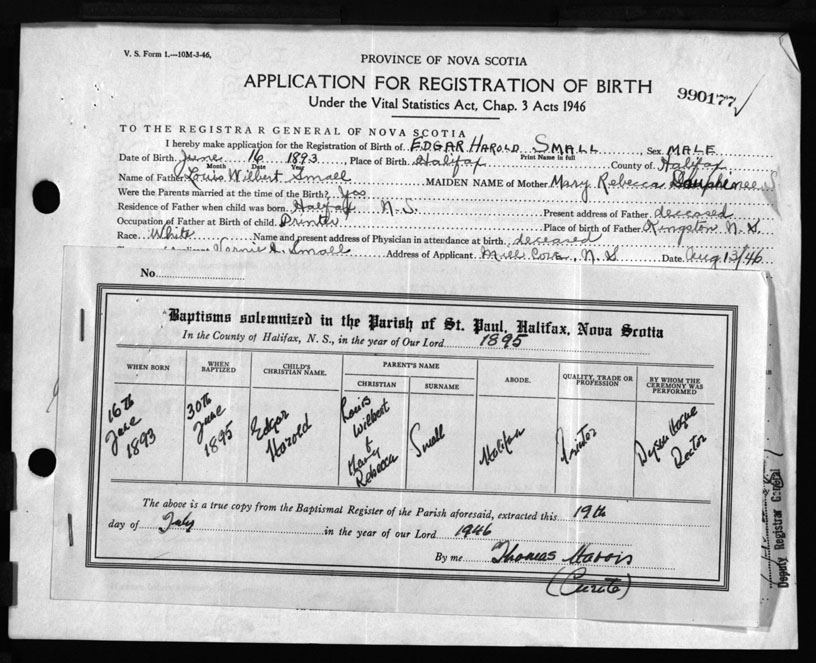 V. S. Form 1.—10M-3-46,
PROVINCE OF NOVA SCOTIA
APPLICATION FOR REGISTRATION OF BIRTH
990177
Under the Vital Statistics Act, Chap. 3 Acts 1946
TO THE REGISTRAR GENERAL OF NOVA SCOTIA
I hereby make application for the Registration of Birth of EDGAR HAROLD SMALL, Sex MALE
Print Name in full
Date of Birth June 16 1893, Place of Birth Halifax County of Halifax
Month Date
Name of Father Louis Wilbert Small MAIDEN NAME of Mother Mary Rebecca
Were the Parents married at the time of the Birth? Yes
Residence of Father when child was born Halifax N.S. Present address of Father deceased
Occupation of Father at Birth of child. Printer Place of birth of Father Kingston N.S.
Race White Name and present address of Physician in attendance at birth deceased
Small Address of Applicant Mill Cove, N.S Date Aug 13/46
No.
Baptisms solemnized in the Parish of St. Paul, Halifax, Nova Scotia
In the County of Halifax, N. S., in the year of Our Lord 1895
WHEN BORN
WHEN BAPTIZED
CHILD'S CHRISTIAN NAME.
PARENT'S NAME
CHRISTIAN
SURNAME
ABODE.
QUALITY, TRADE OR PROFESSION
BY WHOM THE CEREMONY WAS PERFORMED
16th June 1893
30th June 1895
Edgar Harold
Louis Wilbert & Mary Rebecca
Small
Halifax
Printer
Dyson Hague Rector
The above is a true copy from the Baptismal Register of the Parish aforesaid, extracted this 19th
day of July in the year of our Lord 1946
By me Thomas
(Curate)
Deputy Registrar General